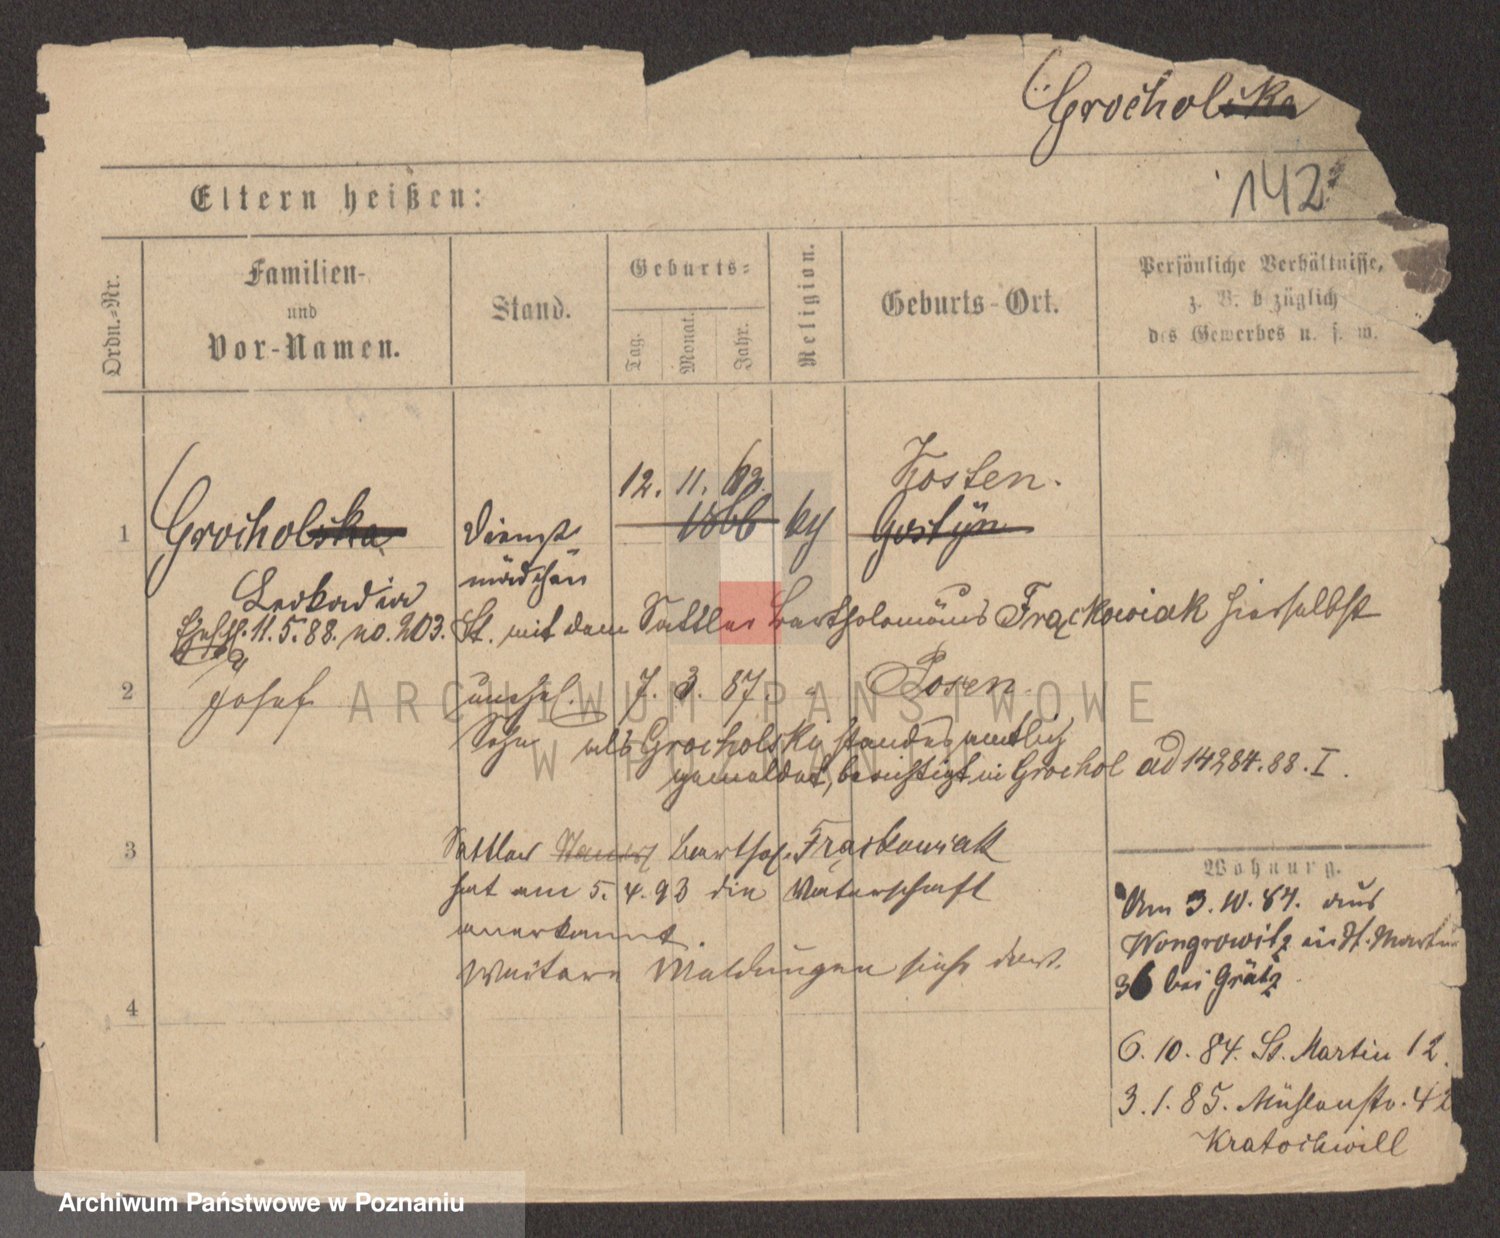 Grochol~~ska~~
142
Eltern heißen:
Ordn.-Nr.
Familien-
und
Vor-Namen.
Stand.
Geburts-
Tag.
Monat.
Jahr.
Religion.
Geburts-Ort.
Persönliche Verhältnisse,
z. B. bezüglich
des Gewerbes u. s. w.
12. 11. 63.
Kosten.
1
Grochol~~ska~~
Dienst-
mädchen
~~1866~~
~~Gostÿn~~
Leokadia
Ehesch. 11.5.88. no. 203. St. mit dem Sattler Bartholomäus Frąckowiak hierselbst
2
Josef
unehel.
Sohn
7. 3. 87.
Posen
als Grocholski standesamtlich
gemeldet, berichtigt in Grochol ad 14284.88.I.
3
Sattler Barthol. Frąckowiak
hat am 5.4.93 die Vaterschaft
anerkannt.
Weitere Meldungen siehe dort.
4
Wohnung.
Am 3.10.84. aus
Wongrowitz in St. Martin
36 bei Grätz
6.10.84. St. Martin 12.
3.1.85. Mühlenstr. 42
Kratochwill
ARCHIWUM PAŃSTWOWE
W POZNANIU
Archiwum Państwowe w Poznaniu